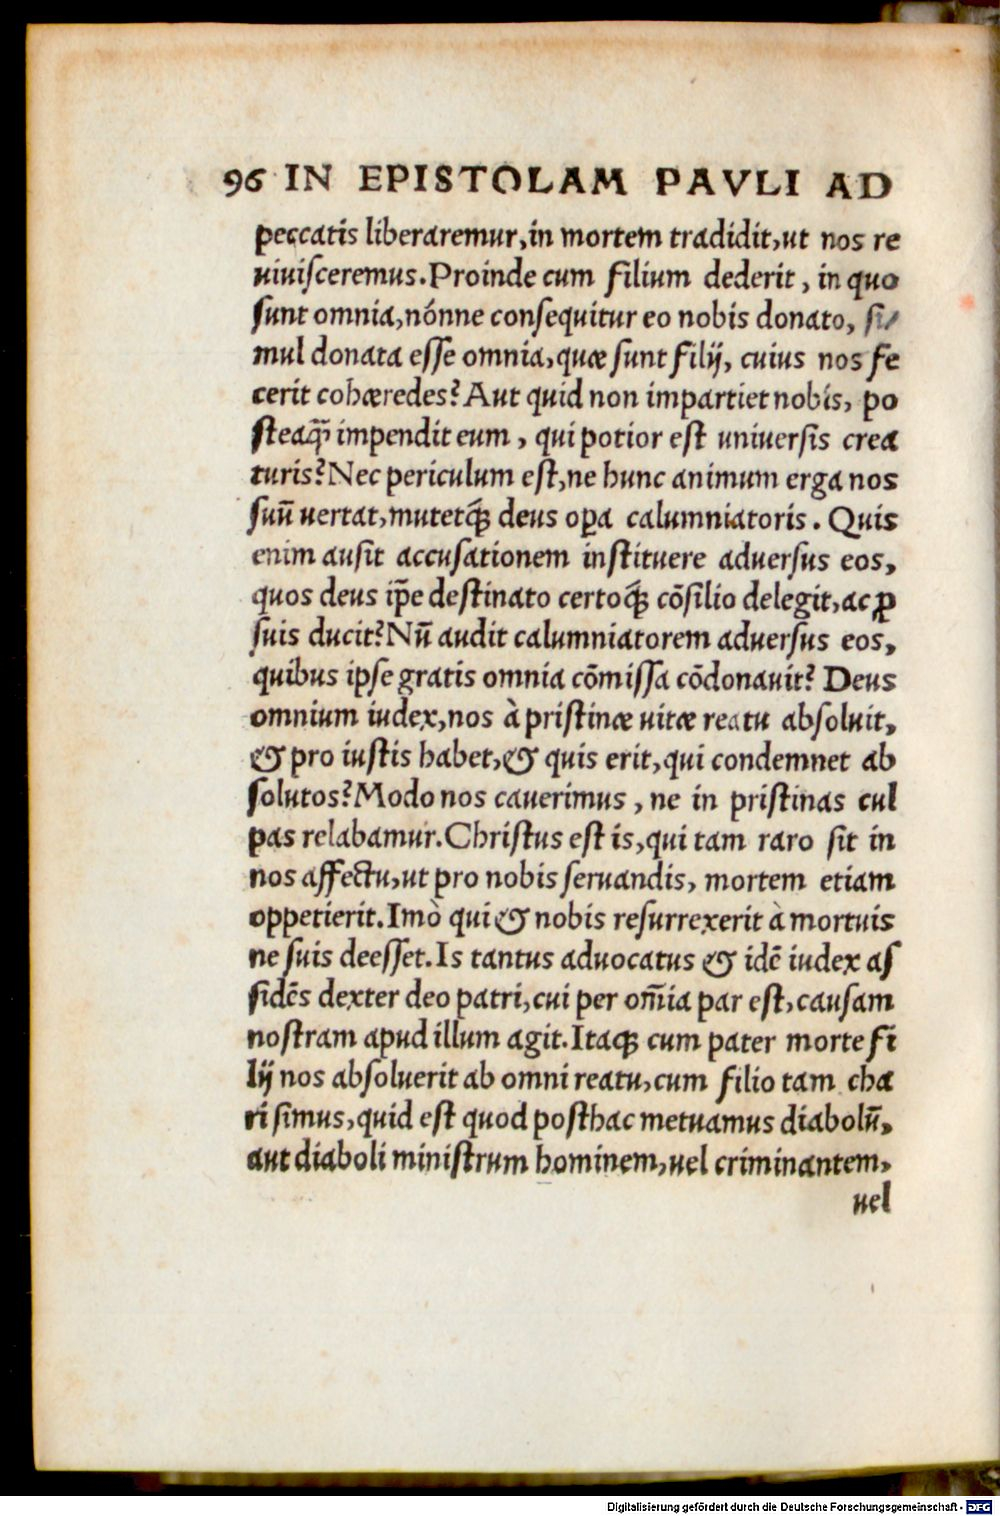 96 IN EPISTOLAM PAVLI AD
peccatis liberaremur, in mortem tradidit, ut nos re
uiuisceremus. Proinde cum filium dederit, in quo
sunt omnia, nónne consequitur eo nobis donato, si/
mul donata esse omnia, quæ sunt filij, cuius nos fe
cerit cohæredes? Aut quid non impartiet nobis, po
steaq̃ impendit eum, qui potior est uniuersis crea
turis? Nec periculum est, ne hunc animum erga nos
suũ uertat, mutetq́ꝫ deus oꝑa calumniatoris. Quis
enim ausit accusationem instituere aduersus eos,
quos deus ip̃e destinato certoq́ꝫ cõsilio delegit, ac ꝓ
suis ducit? Nũ audit calumniatorem aduersus eos,
quibus ipse gratis omnia cõmissa cõdonauit? Deus
omnium iudex, nos à pristinæ uitæ reatu absoluit,
& pro iustis habet, & quis erit, qui condemnet ab
solutos? Modo nos cauerimus, ne in pristinas cul
pas relabamur. Christus est is, qui tam raro sit in
nos affectu, ut pro nobis seruandis, mortem etiam
oppetierit. Imò qui & nobis resurrexerit à mortuis
ne suis deesset. Is tantus aduocatus & idẽ iudex as
sidẽs dexter deo patri, cui per om̃ia par est, causam
nostram apud illum agit. Itaqꝫ cum pater morte fi
lij nos absoluerit ab omni reatu, cum filio tam cha
ri simus, quid est quod posthac metuamus diabolũ,
aut diaboli ministrum hominem, uel criminantem,
uel
Digitalisierung gefördert durch die Deutsche Forschungsgemeinschaft - DFG